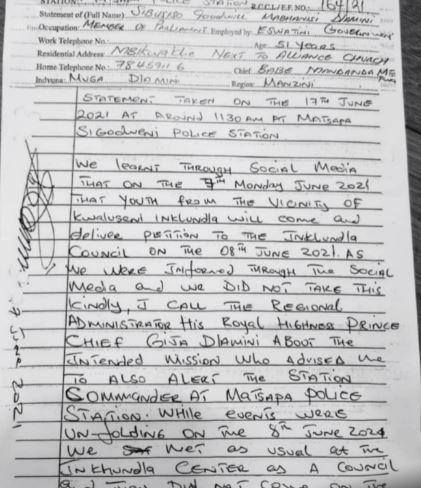 STATION: POLICE STATION RCCI/EF NO: 164/21
Statement of (Full Name) SIBUSISO GOODWILL MABHANISI DLAMINI
Occupation: MEMBER OF PARLIAMENT Employed by: ESWATINI GOVERNMENT
Work Telephone No.: Age 51 YEARS
Residential Address NEXT TO ALLIANCE CHURCH
Home Telephone No.: Chief BABE
Indvuna: MVGA DLAMINI Region: MANZINI
STATEMENT TAKEN ON THE 17TH JUNE
2021 AT AROUND 1130 AM AT MATSAPA
SIGODWENI POLICE STATION
WE LEARNT THROUGH SOCIAL MEDIA
THAT ON THE 7TH MONDAY JUNE 2021
THAT YOUTH FROM THE VICINITY OF
KWALUSENI INKLUNDLA WILL COME and
deliver PETITION TO THE INKLUNDLA
COUNCIL ON THE 08TH JUNE 2021. AS
WE WERE INFORMED THROUGH THE SOCIAL
MEDIA and WE DID NOT TAKE THIS
KINDLY, I CALL THE REGIONAL
ADMINISTRATOR HIS ROYAL HIGHNESS PRINCE
CHIEF GIJA DLAMINI ABOUT THE
INTENDED MISSION WHO ADVISED ME
TO ALSO ALERT THE STATION
COMMANDER AT MATSAPA POLICE
STATION. WHILE EVENTS WERE
UN-FOLDING ON THE 8TH JUNE 2021
WE MET AS USUAL AT THE
INKHUNDLA CENTER AS A COUNCIL
and DID NOT COME ON THE
JUNE 2021